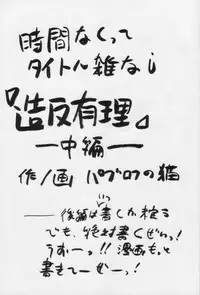 時間なくって
タイトル雑なし
『造反有理』
―中編―
作/画 パブロフの猫
―― 後編はいつ書くか
でも、絶対書くぜぃっ!
うおーっ!! 漫画もっと
書きてーぜーっ!